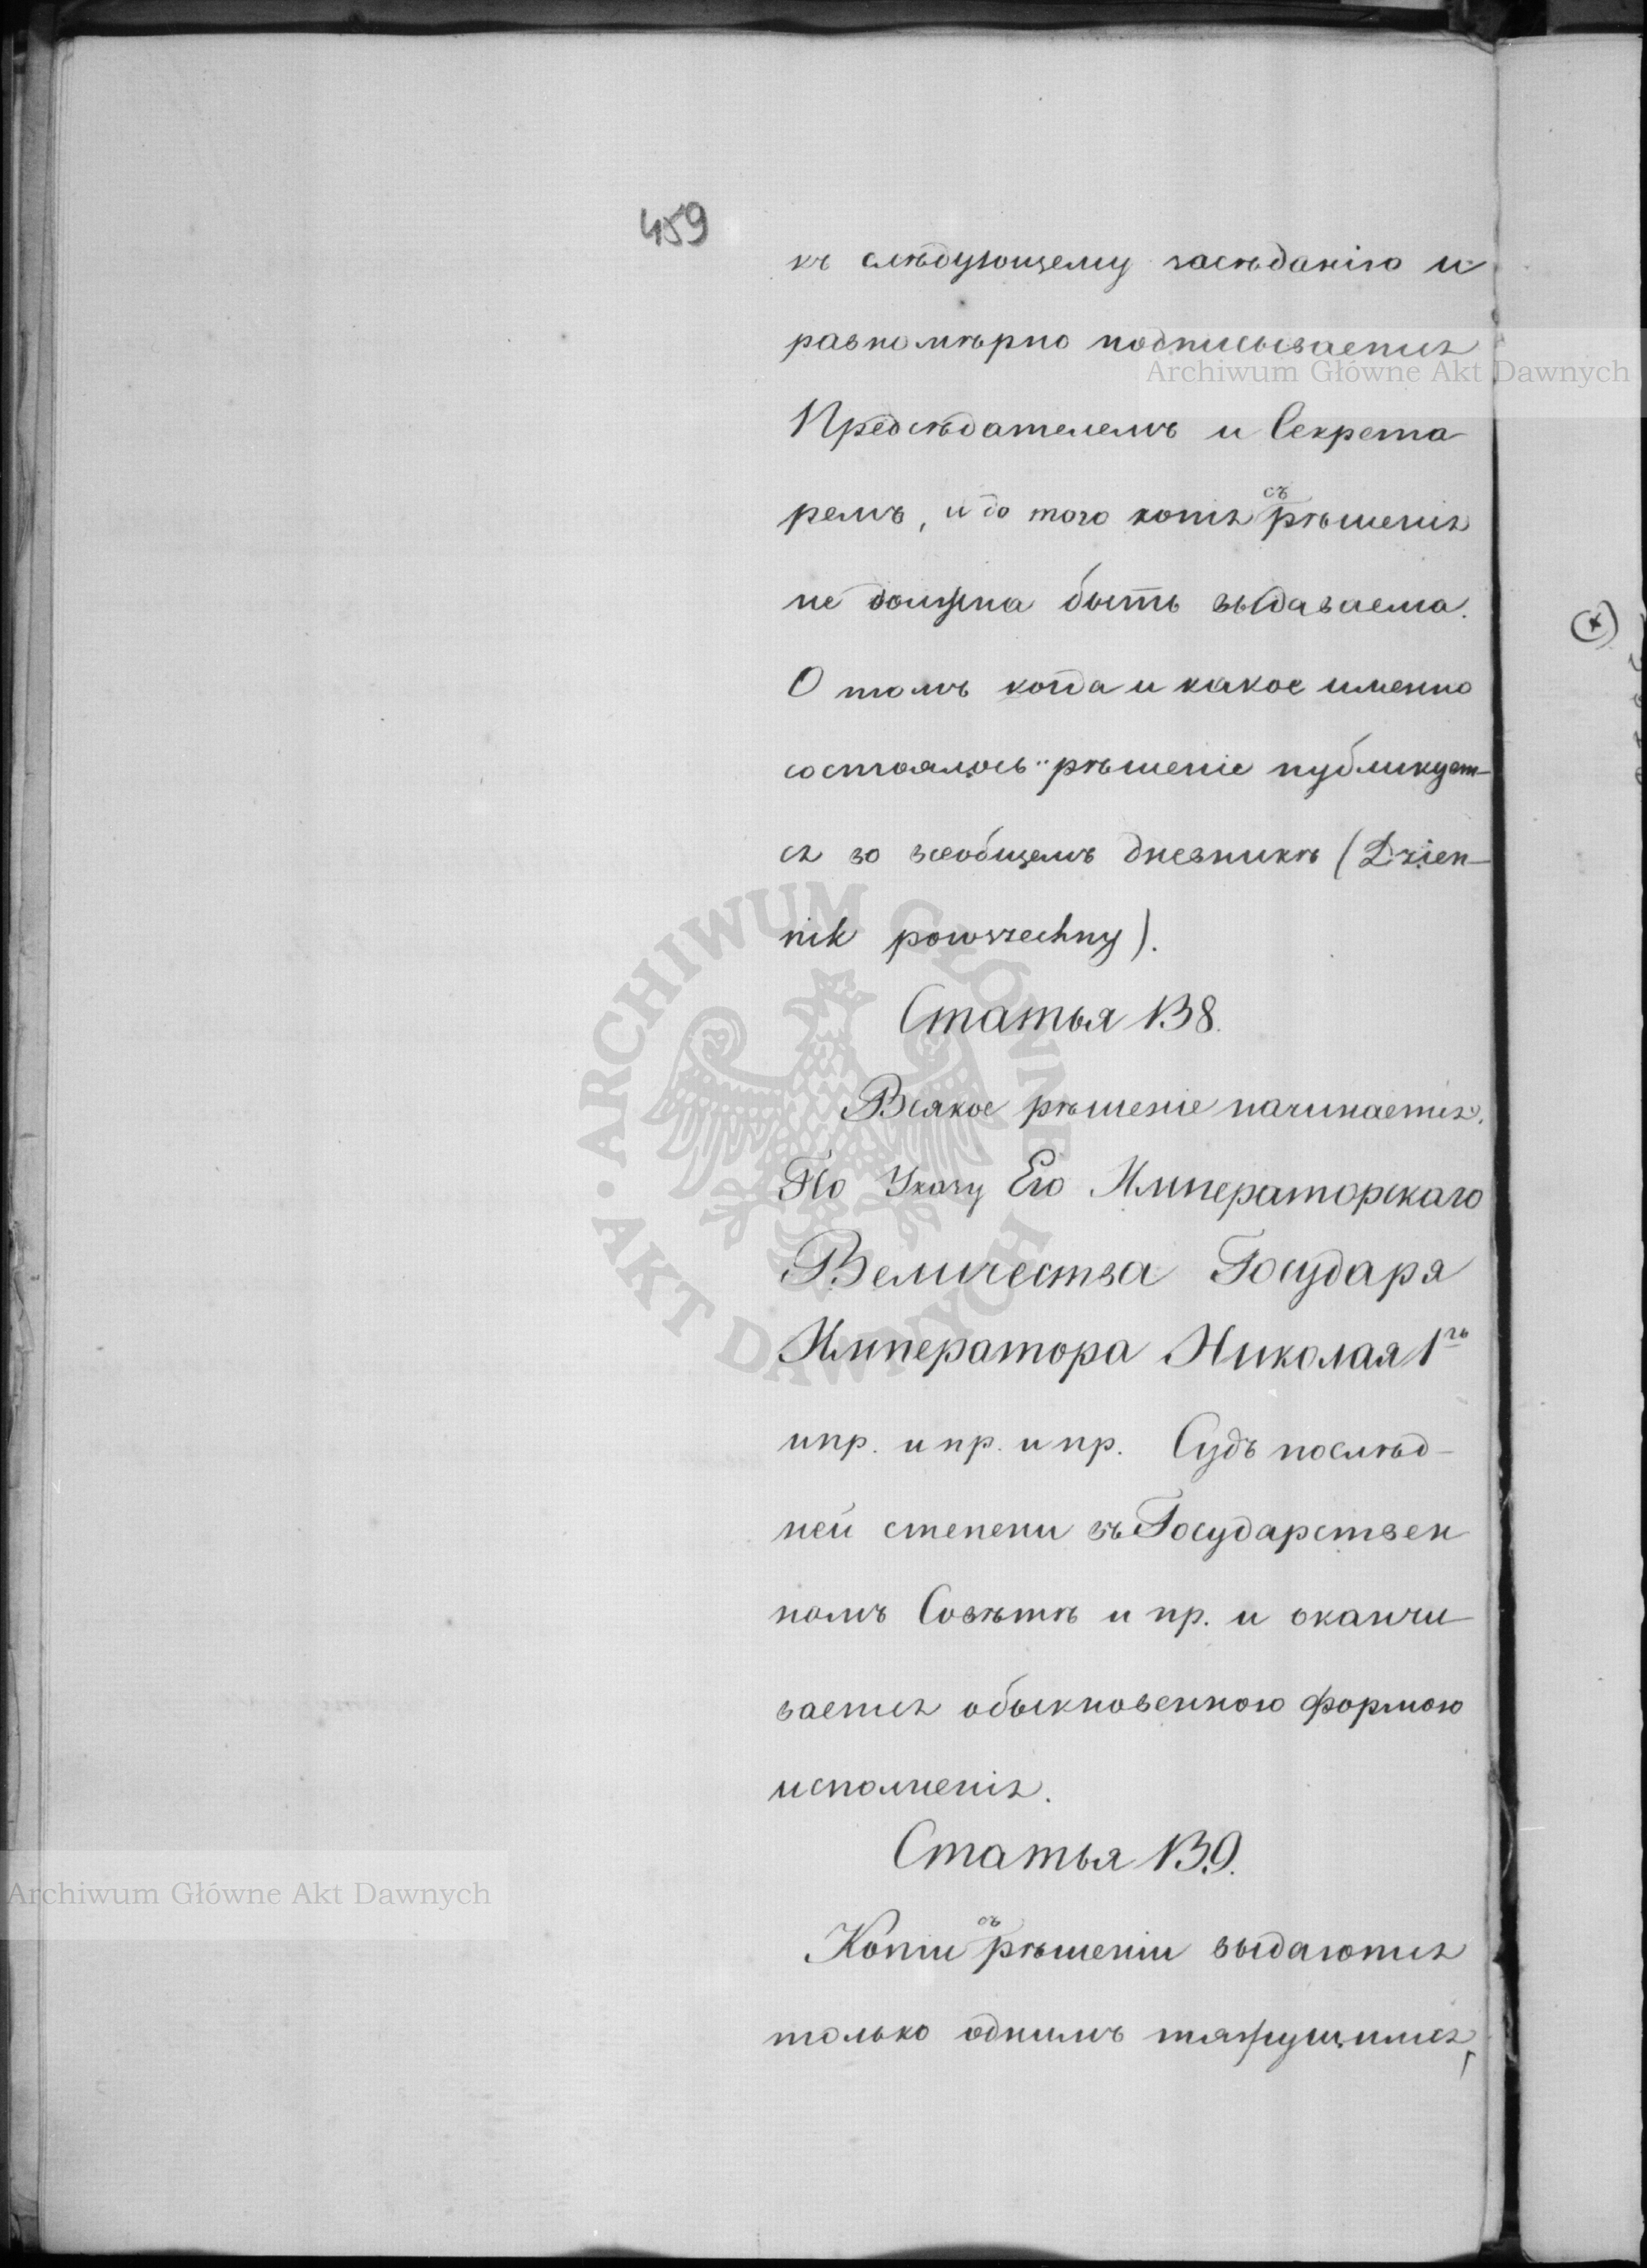 459
къ слѣдующему засѣданію и
равномѣрно подписывается
Предсѣдателемъ и Секрета-
ремъ, и до того копія съ рѣшенія
не должна быть выдаваема.
О томъ когда и какое именно
состоялось рѣшеніе публикует-
ся во всеобщемъ дневникѣ (Dzien-
nik powszechny).
Статья 138.
Всякое рѣшеніе начинается.
По Указу Его Императорскаго
Величества Государя
Императора Николая 1го
и пр. и пр. и пр. Судъ послѣд-
ней степени въ Государствен
номъ Совѣтѣ и пр. и оканчи-
вается обыкновенною формою
исполненія.
Статья 139.
Копіи съ рѣшеніи выдаются
только однимъ тяжущимся,
(x)
Archiwum Główne Akt Dawnych
ARCHIWUM GŁÓWNE AKT DAWNYCH
Archiwum Główne Akt Dawnych